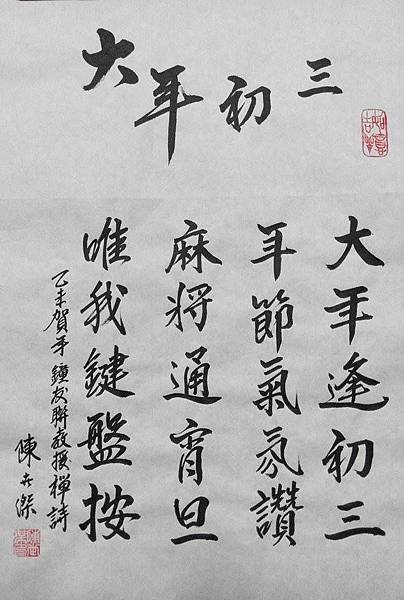 大年初三
大年逢初三
年節氣氛讚
麻將通宵旦
唯我鍵盤按
乙未賀年鐘友聯教授禪詩
陳世傑